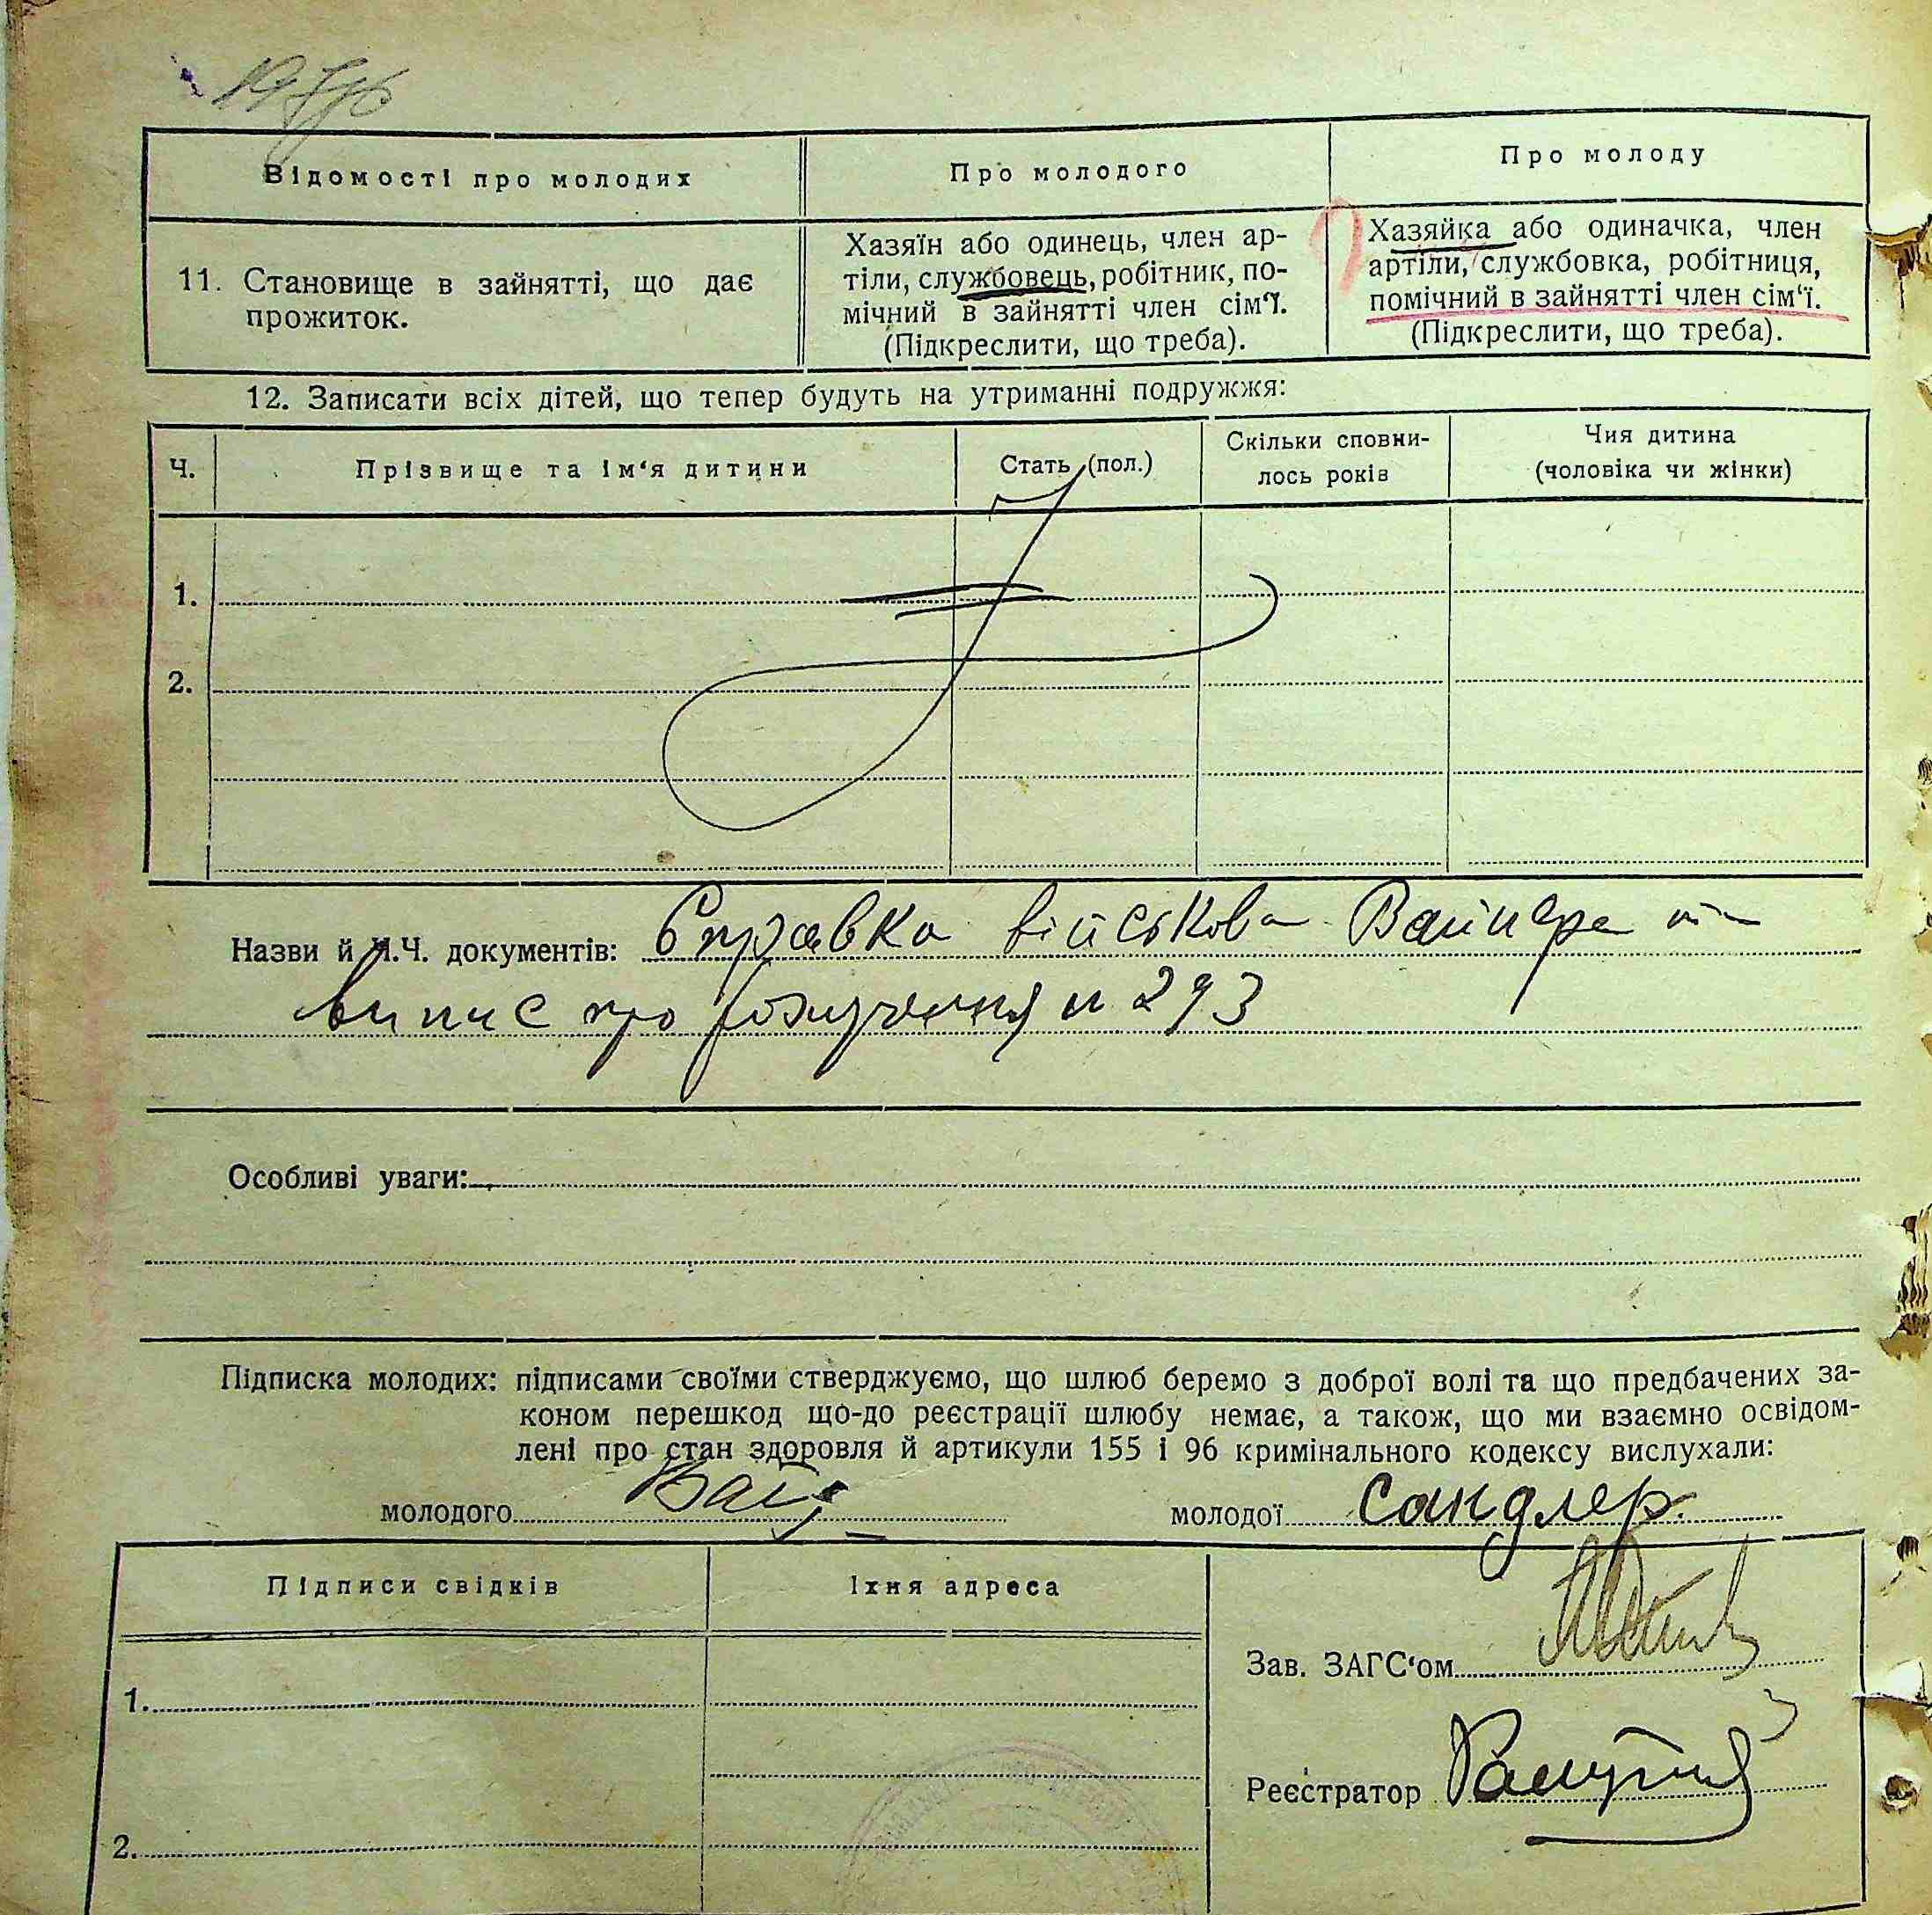 Відомості про молодих
Про молодого
Про молоду
11. Становище в зайнятті, що дає
прожиток.
Хазяїн або одинець, член ар-
тіли, службовець, робітник, по-
мічний в зайнятті член сім'ї.
(Підкреслити, що треба).
Хазяйка або одиначка, член
артіли, службовка, робітниця,
помічний в зайнятті член сім'ї.
(Підкреслити, що треба).
12. Записати всіх дітей, що тепер будуть на утриманні подружжя:
Ч.
Прізвище та ім'я дитини
Стать (пол.)
Скільки сповни-
лось років
Чия дитина
(чоловіка чи жінки)
1.
2.
Назви й Ч.Ч. документів: Справка військова Вайнера та
випис про розлучення н 293
Особливі уваги:
Підписка молодих: підписами своїми стверджуємо, що шлюб беремо з доброї волі та що предбачених за-
коном перешкод що-до реєстрації шлюбу немає, а також, що ми взаємно освідом-
лені про стан здоровля й артикули 155 і 96 кримінального кодексу вислухали:
молодого
молодої Сандлер.
Підписи свідків
Їхня адреса
1.
2.
Зав. ЗАГС'ом
Реєстратор